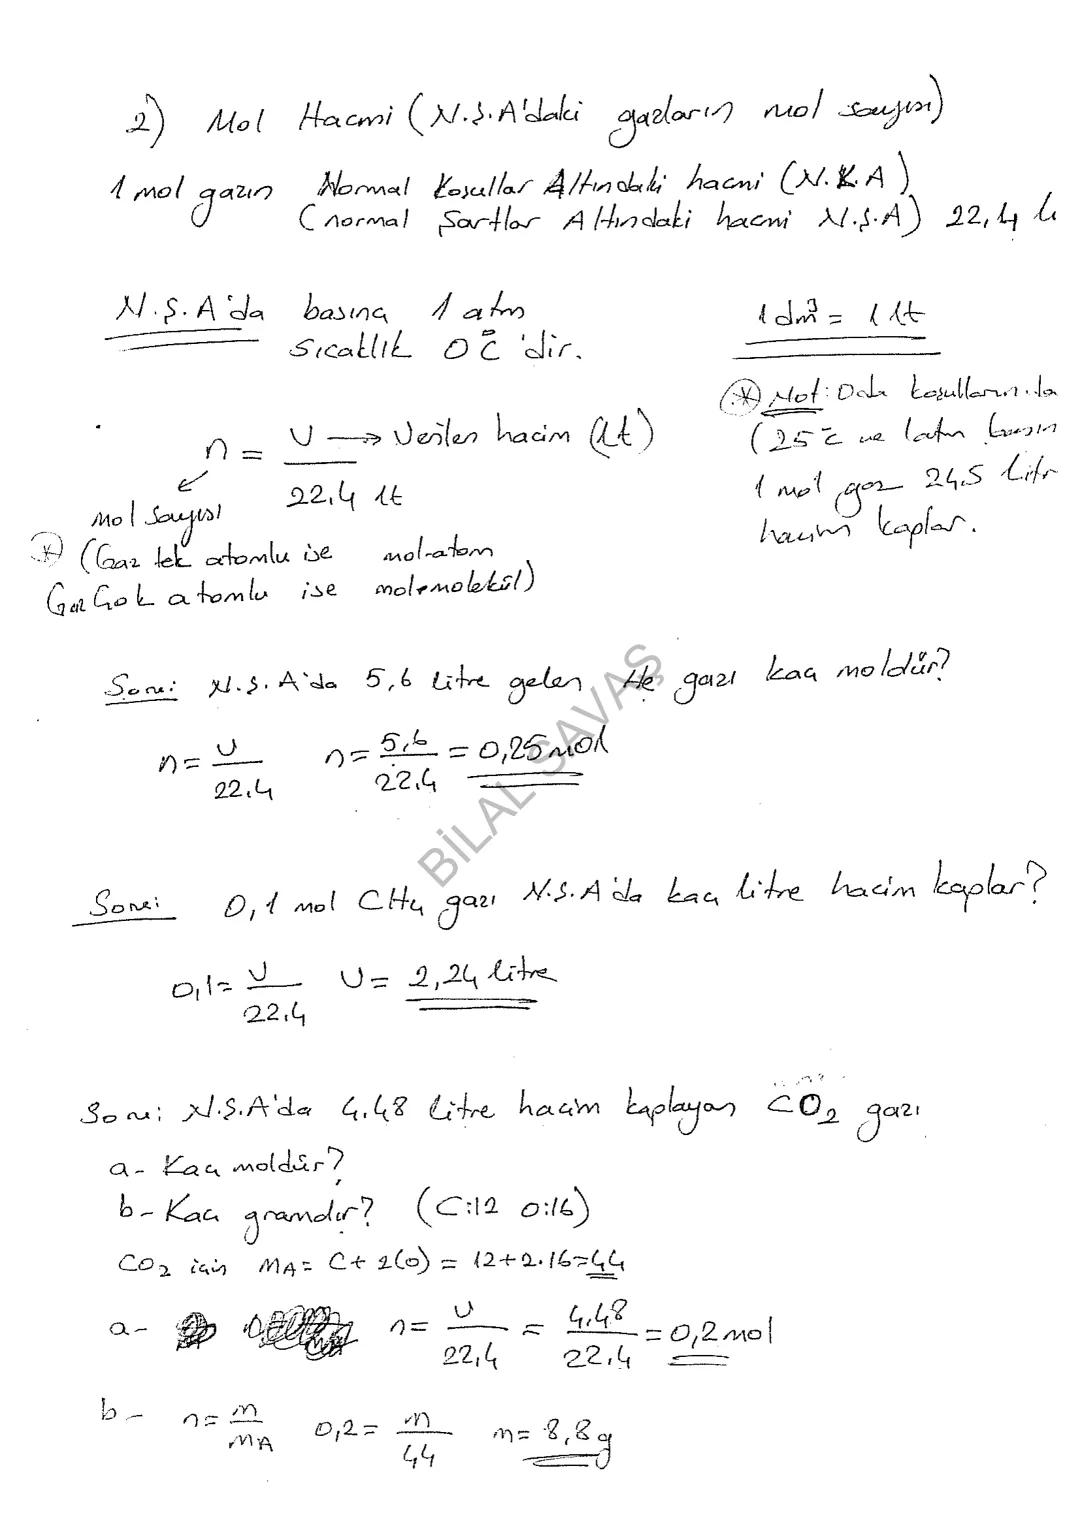 2) Mol Hacmi (N.Ş.A'daki gazların mol sayısı)
1 mol gazın Normal Koşullar Altındaki hacmi (N.K.A)
(normal Şartlar Altındaki hacmi N.Ş.A) 22,4 lt
N.Ş.A'da basınç 1 atm
sıcaklık 0°C'dir.
1 dm³ = 1 lt
* Not: Oda koşullarında
(25°C ve 1 atm basın
1 mol gaz 24,5 litr
hacim kaplar.
n = V → Verilen hacim (lt)
22,4 lt
mol sayısı
* (Gaz tek atomlu ise mol-atom
Gaz Çok atomlu ise mol-molekül)
Soru: N.Ş.A'da 5,6 litre gelen He gazı kaç moldür?
n = V/22,4 n = 5,6/22,4 = 0,25 mol
BİLAL SAVAŞ
Soru: 0,1 mol CH4 gazı N.Ş.A'da kaç litre hacim kaplar?
0,1 = V/22,4 V = 2,24 litre
Soru: N.Ş.A'da 4,48 litre hacim kaplayan CO2 gazı
a- Kaç moldür?
b- Kaç gramdır? (C:12 O:16)
CO2 için MA = C + 2(O) = 12+2.16=44
a- n = V/22,4 = 4,48/22,4 = 0,2 mol
b- n = m/MA 0,2 = m/44 m = 8,8 g